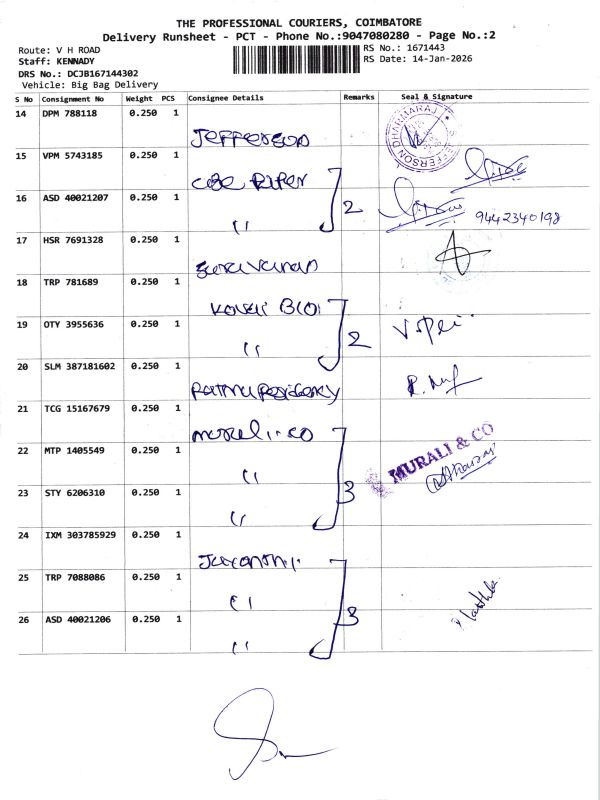 THE PROFESSIONAL COURIERS, COIMBATORE
Delivery Runsheet - PCT - Phone No.:9047080280 - Page No.:2
Route: V H ROAD
RS No.: 1671443
Staff: KENNADY
RS Date: 14-Jan-2026
DRS No.: DCJB167144302
Vehicle: Big Bag Delivery
S No Consignment No Weight PCS Consignee Details Remarks Seal & Signature
14 DPM 788118 0.250 1 Jefferson
JEFFERSON DHARMARAJ
15 VPM 5743185 0.250 1
16 ASD 40021207 0.250 1 " 2 9442340198
17 HSR 7691328 0.250 1 Saravanan
18 TRP 781689 0.250 1
19 OTY 3955636 0.250 1 " 2
20 SLM 387181602 0.250 1
21 TCG 15167679 0.250 1
22 MTP 1405549 0.250 1 " MURALI & CO
23 STY 6206310 0.250 1 " 3
24 IXM 303785929 0.250 1
25 TRP 7088086 0.250 1 "
26 ASD 40021206 0.250 1 " 3